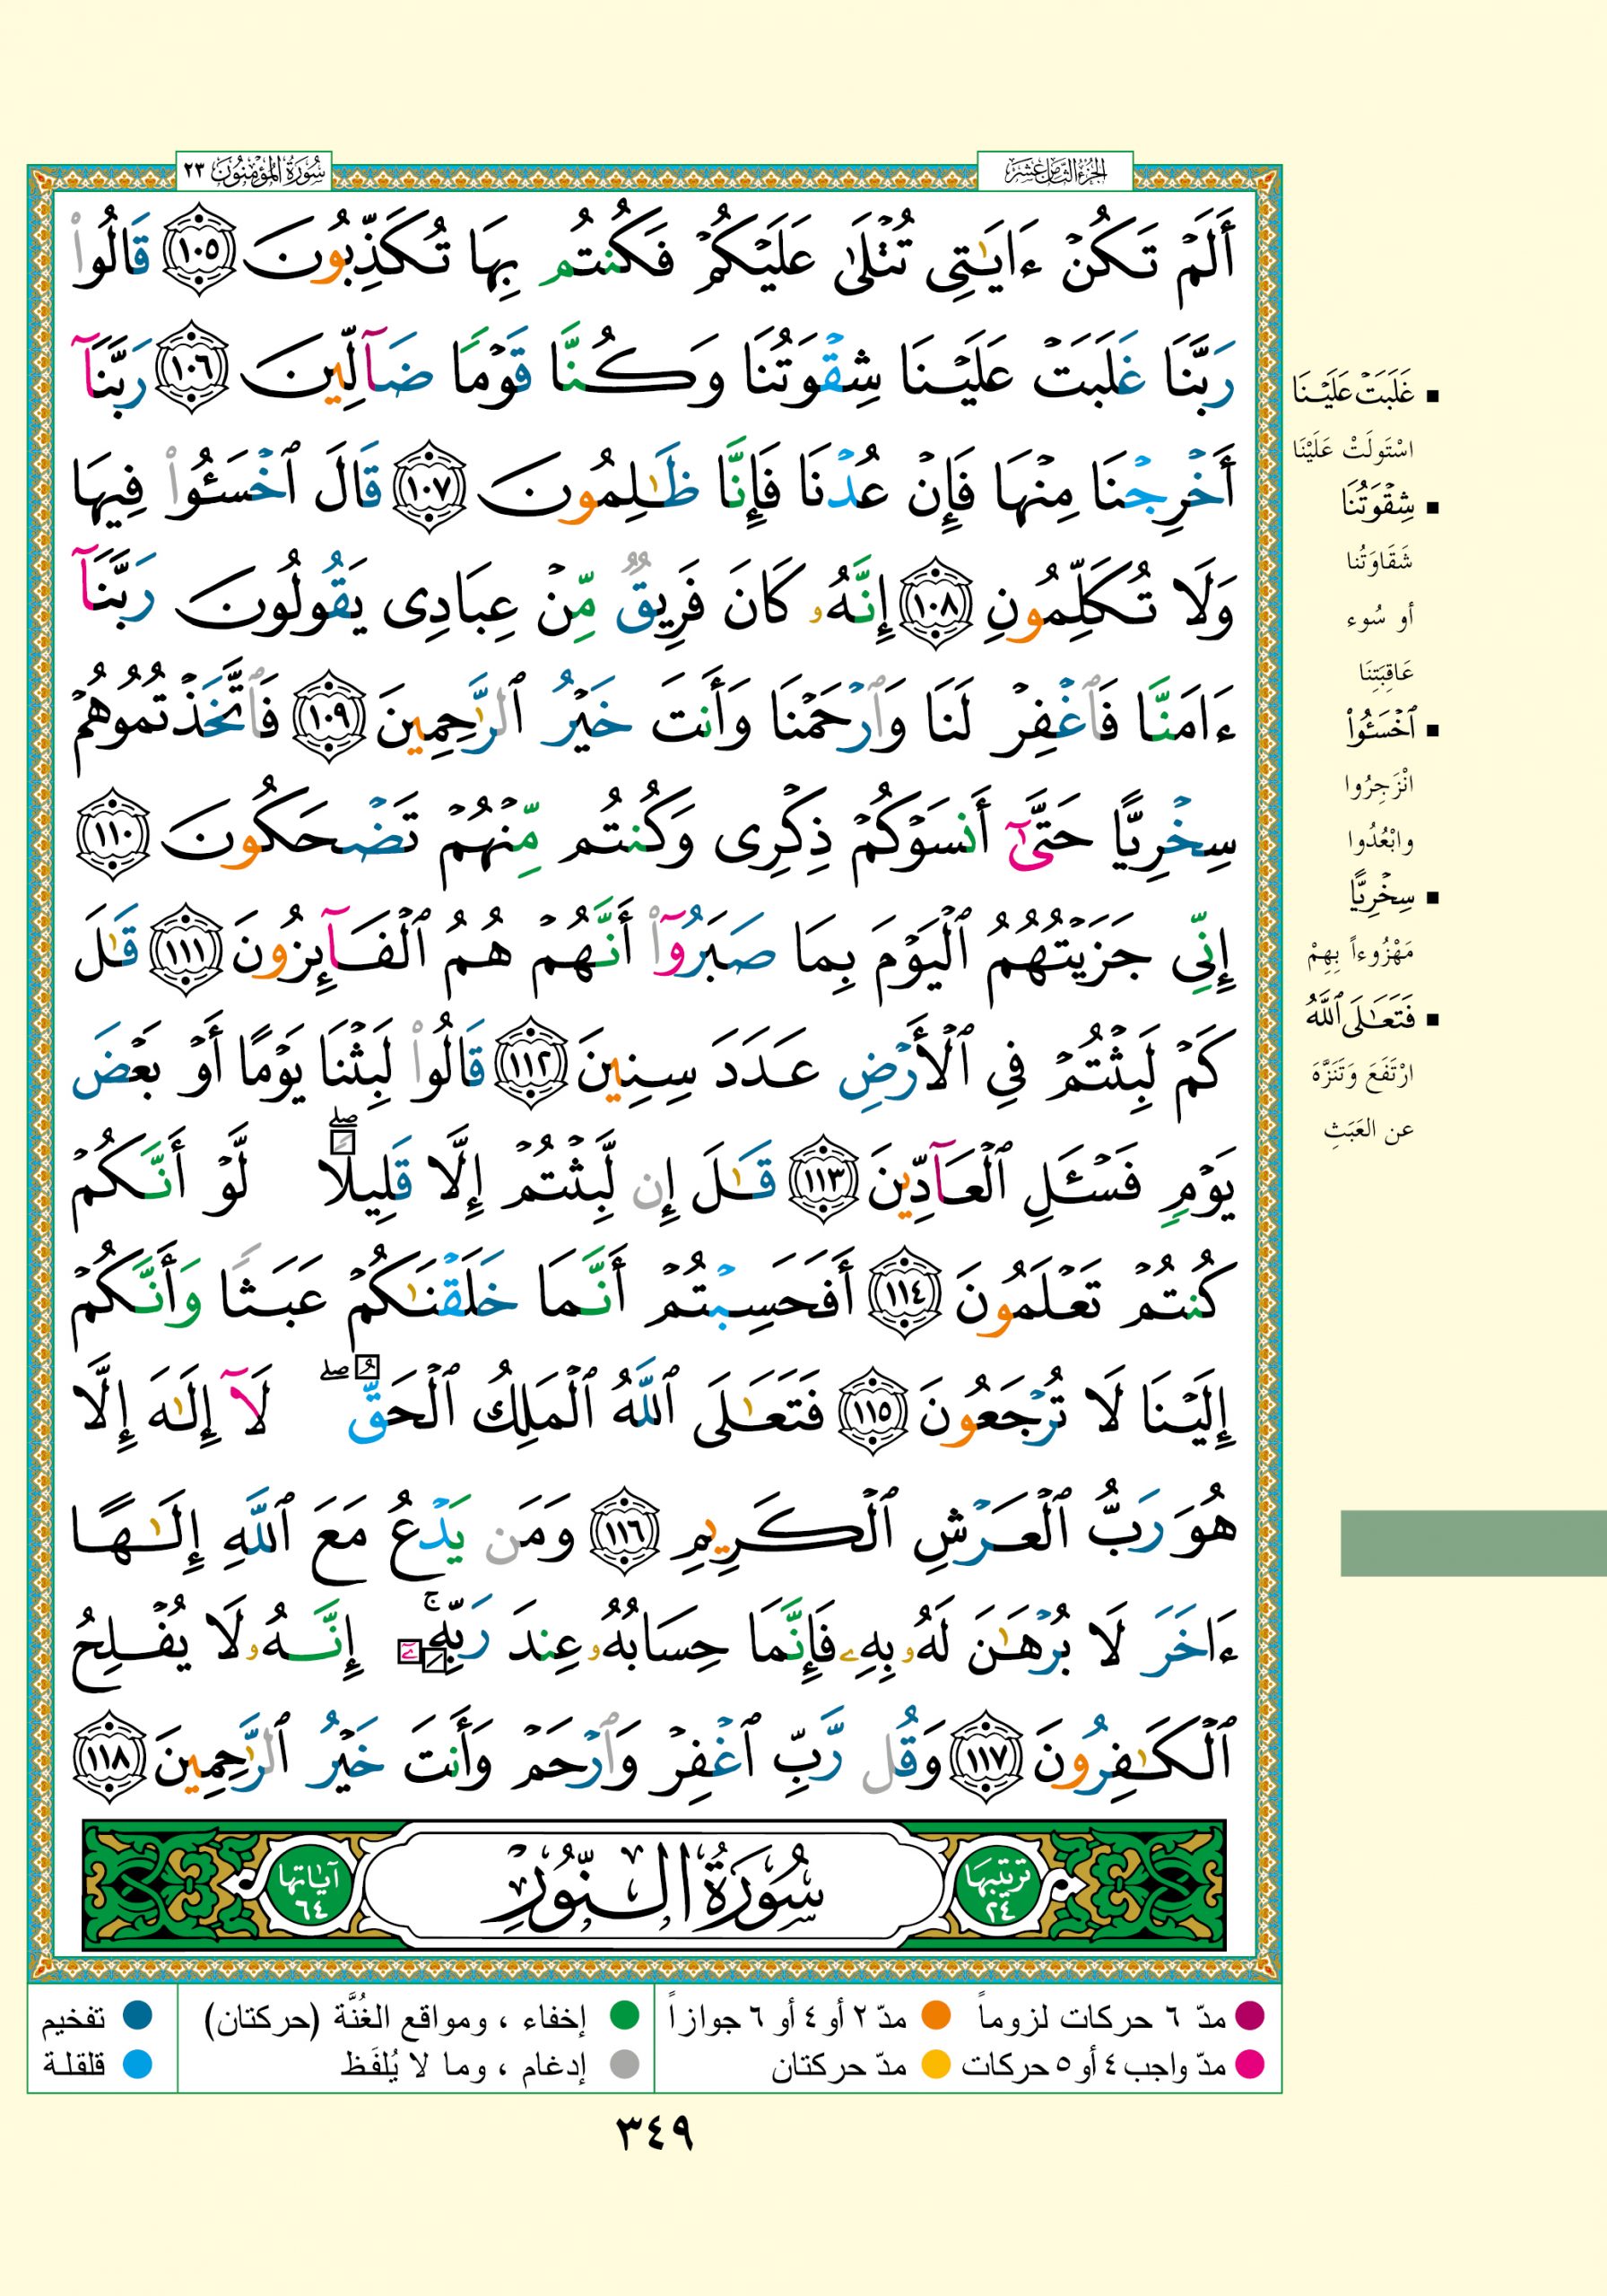 الجزء الثامن عشر
سورة المؤمنون ٢٣
أَلَمْ تَكُنْ ءَايَٰتِى تُتْلَىٰ عَلَيْكُمْ فَكُنتُم بِهَا تُكَذِّبُونَ ١٠٥ قَالُوا۟
رَبَّنَا غَلَبَتْ عَلَيْنَا شِقْوَتُنَا وَكُنَّا قَوْمًا ضَآلِّينَ ١٠٦ رَبَّنَآ
أَخْرِجْنَا مِنْهَا فَإِنْ عُدْنَا فَإِنَّا ظَٰلِمُونَ ١٠٧ قَالَ ٱخْسَـُٔوا۟ فِيهَا
وَلَا تُكَلِّمُونِ ١٠٨ إِنَّهُۥ كَانَ فَرِيقٌ مِّنْ عِبَادِى يَقُولُونَ رَبَّنَآ
ءَامَنَّا فَٱغْفِرْ لَنَا وَٱرْحَمْنَا وَأَنتَ خَيْرُ ٱلرَّٰحِمِينَ ١٠٩ فَٱتَّخَذْتُمُوهُمْ
سِخْرِيًّا حَتَّىٰٓ أَنسَوْكُمْ ذِكْرِى وَكُنتُم مِّنْهُمْ تَضْحَكُونَ ١١٠
إِنِّى جَزَيْتُهُمُ ٱلْيَوْمَ بِمَا صَبَرُوٓا۟ أَنَّهُمْ هُمُ ٱلْفَآئِزُونَ ١١١ قَٰلَ
كَمْ لَبِثْتُمْ فِى ٱلْأَرْضِ عَدَدَ سِنِينَ ١١٢ قَالُوا۟ لَبِثْنَا يَوْمًا أَوْ بَعْضَ
يَوْمٍ فَسْـَٔلِ ٱلْعَآدِّينَ ١١٣ قَٰلَ إِن لَّبِثْتُمْ إِلَّا قَلِيلًا ۖ لَّوْ أَنَّكُمْ
كُنتُمْ تَعْلَمُونَ ١١٤ أَفَحَسِبْتُمْ أَنَّمَا خَلَقْنَٰكُمْ عَبَثًا وَأَنَّكُمْ
إِلَيْنَا لَا تُرْجَعُونَ ١١٥ فَتَعَٰلَى ٱللَّهُ ٱلْمَلِكُ ٱلْحَقُّ ۖ لَآ إِلَٰهَ إِلَّا
هُوَ رَبُّ ٱلْعَرْشِ ٱلْكَرِيمِ ١١٦ وَمَن يَدْعُ مَعَ ٱللَّهِ إِلَٰهًا
ءَاخَرَ لَا بُرْهَٰنَ لَهُۥ بِهِۦ فَإِنَّمَا حِسَابُهُۥ عِندَ رَبِّهِۦٓ ۚ إِنَّهُۥ لَا يُفْلِحُ
ٱلْكَٰفِرُونَ ١١٧ وَقُل رَّبِّ ٱغْفِرْ وَٱرْحَمْ وَأَنتَ خَيْرُ ٱلرَّٰحِمِينَ ١١٨
ترتيبها ٢٤
سُورَةُ النُّورِ
آياتها ٦٤
غَلَبَتْ عَلَيْنَا
اسْتَولَتْ عَلَيْنَا
شِقْوَتُنَا
شَقَاوَتُنا
أو سُوء
عَاقِبَتِنَا
ٱخْسَـُٔوا۟
انْزَجِرُوا
وابْعُدُوا
سِخْرِيًّا
مَهْزُوءاً بِهِمْ
فَتَعَٰلَى ٱللَّهُ
ارْتَفَعَ وَتَنَزَّهَ
عن العَبَثِ
مدّ ٦ حركات لزوماً
مدّ ٢ أو ٤ أو ٦ جوازاً
إخفاء ، ومواقع الغُنَّة (حركتان)
تفخيم
مدّ واجب ٤ أو ٥ حركات
مدّ حركتان
إدغام ، وما لا يُلفَظ
قلقلة
٣٤٩